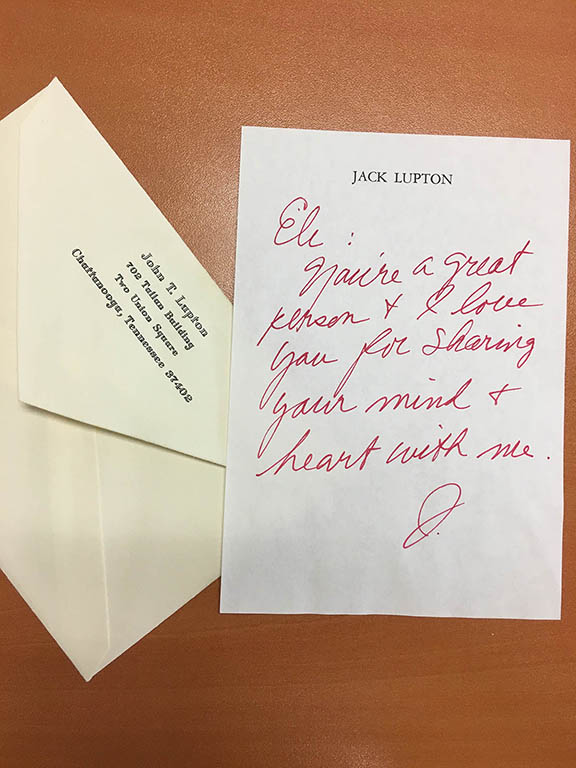 John T. Lupton
702 Tallan Building
Two Union Square
Chattanooga, Tennessee 37402
JACK LUPTON
Eli:
You're a great
person & I love
you for sharing
your mind &
heart with me.
J.